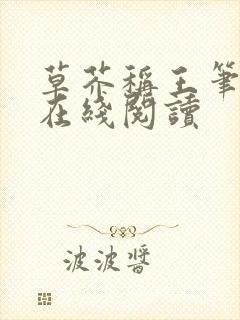 草芥稱王筆
在綫閱讀
波波醬